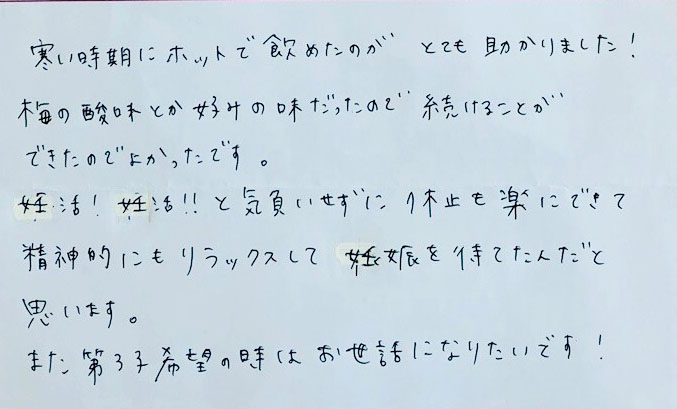 寒い時期にホットで飲めたのが とても助かりました!
梅の酸味とか好みの味だったので 続けることが
できたのでよかったです。
妊活! 妊活!! と気負いせずに 休止も楽にできて
精神的にもリラックスして 妊娠を待てたんだと
思います。
また第3子希望の時はお世話になりたいです!